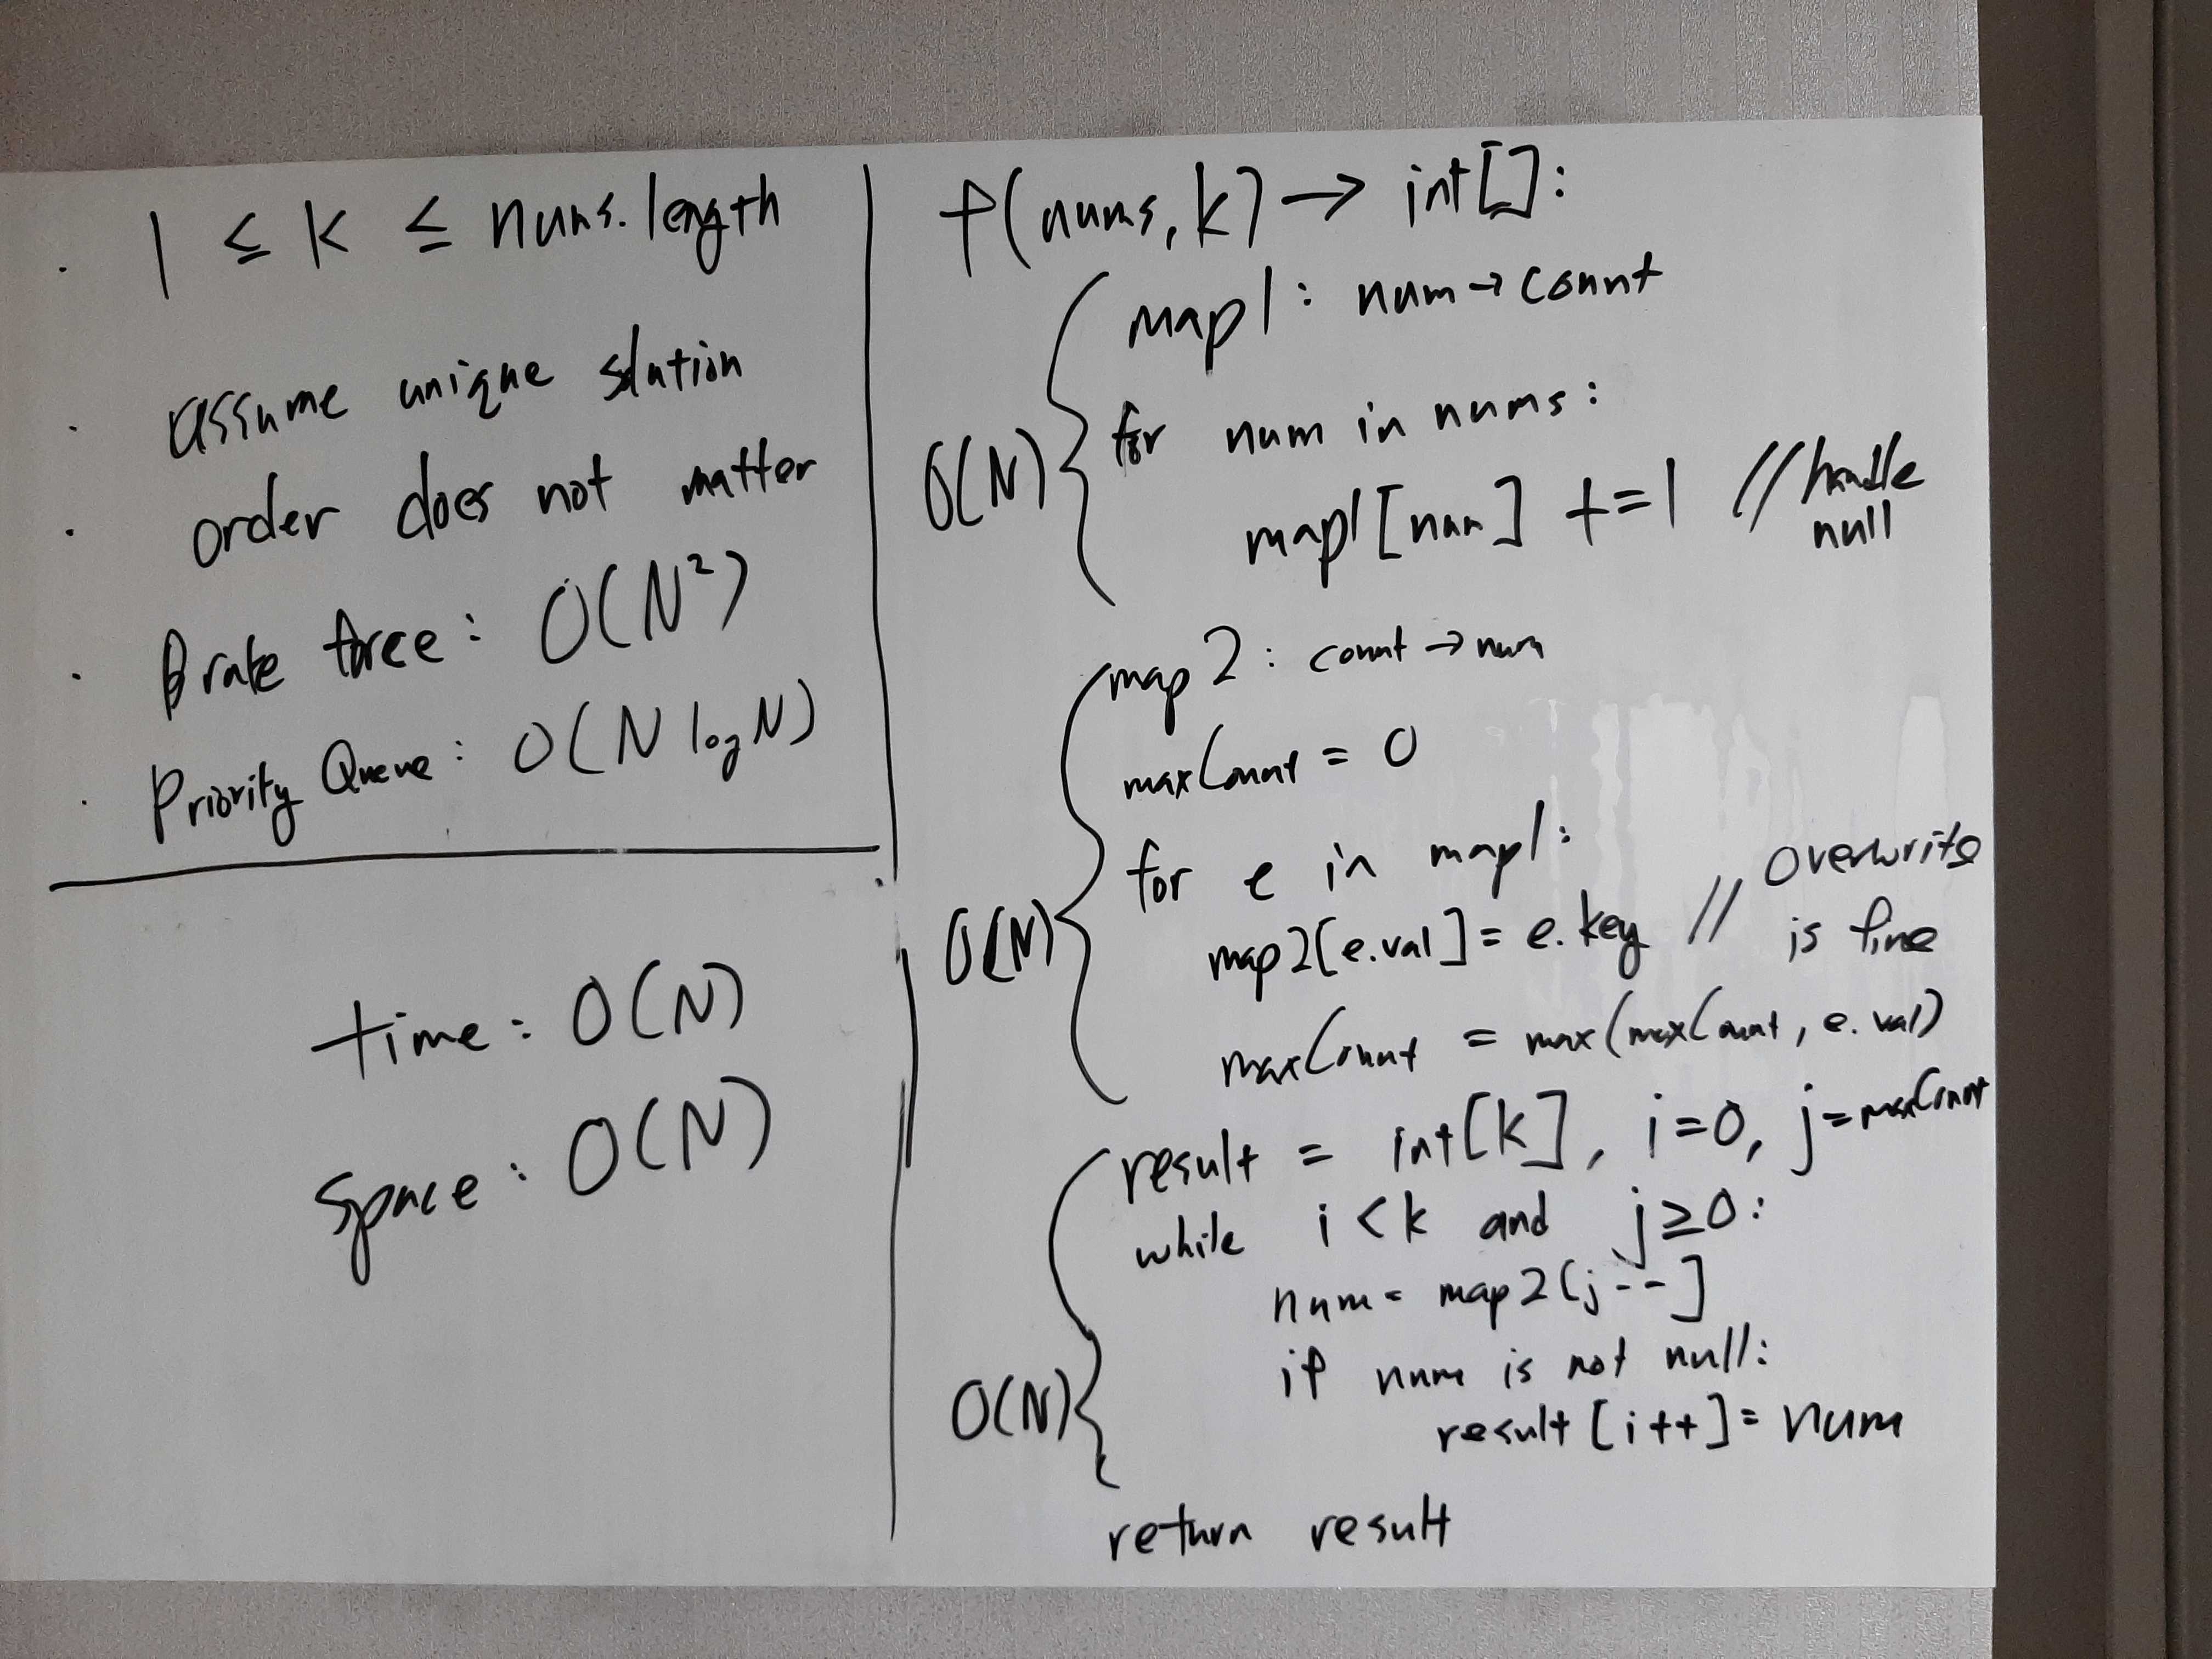 · 1 ≤ k ≤ nums.length
· assume unique solution
· order does not matter
· Brute force: O(N²)
· Priority Queue: O(N log N)
time: O(N)
space: O(N)
f(nums, k) → int[]:
map1: num → count
for num in nums:
map1[num] += 1 // handle null
O(N)
map2: count → num
maxCount = 0
for e in map1:
map2[e.val] = e.key // overwrite is fine
maxCount = max(maxCount, e.val)
O(N)
result = int[k], i=0, j=maxCount
while i < k and j ≥ 0:
num = map2[j--]
if num is not null:
result[i++] = num
O(N)
return result